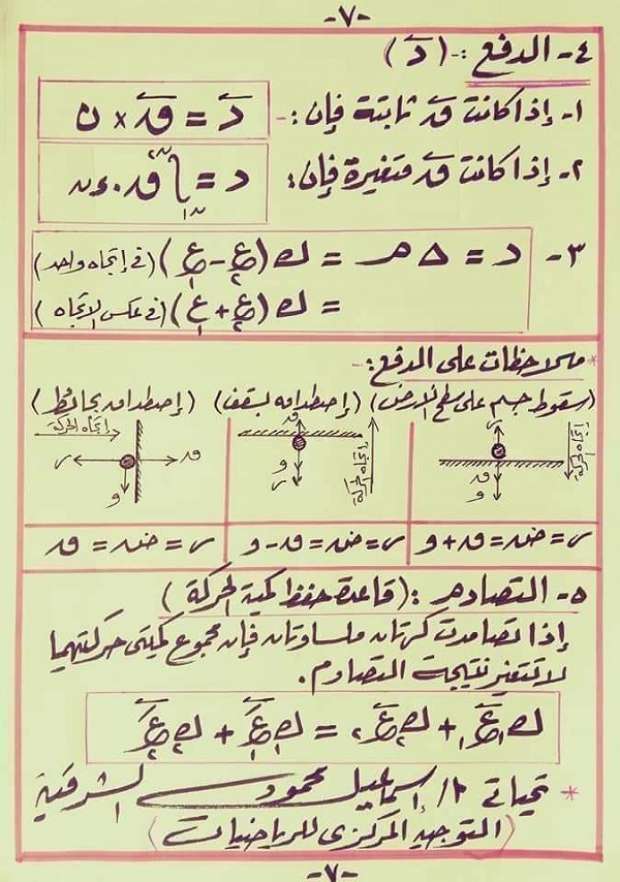 -٧-
٤- الدفع :- (د)
١- إذا كانت ق ثابتة فإن :- د = ق × ن
٢- إذا كانت ق متغيرة فإن: د = ∫ ق . ءن
ن١ ن٢
٣- د = Δ م = ك (ع٢ - ع١) (فى إتجاه واحد)
= ك (ع٢ + ع١) (فى عكس الإتجاه)
* ملاحظات على الدفع :-
(سقوط جسم على سطح الأرض) (إصطدامه بسقف) (إصطدامه بحائط)
إتجاه الحركة
ر
ق
و
إتجاه الحركة
ق
و
ر
إتجاه الحركة
ر
ق
و
ر = ضغط = ق + و
ر = ضغط = ق - و
ر = ضغط = ق
٥- التصادم : (قاعدة حفظ كمية الحركة)
إذا تصادمت كرتان ملساوتان فإن مجموع كميتى حركتهما
لا تتغير نتيجة التصادم .
ك١ ع١ + ك٢ ع٢ = ك١ عَ١ + ك٢ عَ٢
* تحياتى ٢/ إسماعيل محمود الشرقية
(التوجيه المركزى للرياضيات)
-٧-